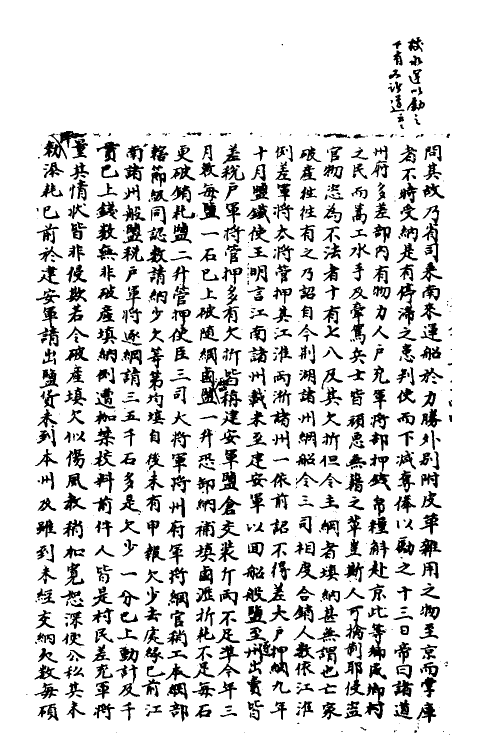 問其故乃省司来南米運船於力勝外别附皮革雜用之物至京而掌庫
者不時受納是有停滯之患判使而下減奪俸以勵之十三日帝曰諸道
州府多差部内有物力人户充軍將部押錢帛糧斛赴京此等鄉民鄉村
之民而篙工水手及牽駕兵士皆頑愚無藉之輩豈斯人可擒制耶侵盗
官物恣為不法者十有七八及其欠折但令主綱者填納甚無謂也亡家
破産往往有之乃詔自今荆湖諸州綱船令三司相度合銷人數依江淮
例差軍將大將管押其江淮兩浙諸州一依前詔不得差大户押綱九年
十月鹽鐵使王明言江南諸州載米至建安軍以回船般鹽至州出賣皆
差税户軍將管押多有欠折皆稱建安軍鹽倉交裝斤兩不足準今年三
月敕每鹽一石已上破隨綱鹵鹽一升恐卸納補填鹵瀝折耗不足每石
更破銷耗鹽二升管押使臣三司大將軍將州府軍將綱官稍工本綱部
轄節級同認數請納少欠等第均填自後未有申報欠少去處緣已前江
南諸州般鹽税户軍將逐綱請三五千石多是欠少一分已上動計及千
貫已上錢數無非破産填納例遭枷禁校料前件人皆是村民差充軍將
量其情狀皆非侵欺若令破産填欠似傷風教稍加寬恕深便公私其未
敕添耗已前於建安軍請出鹽貨未到本州及雖到未經交納欠數每碩